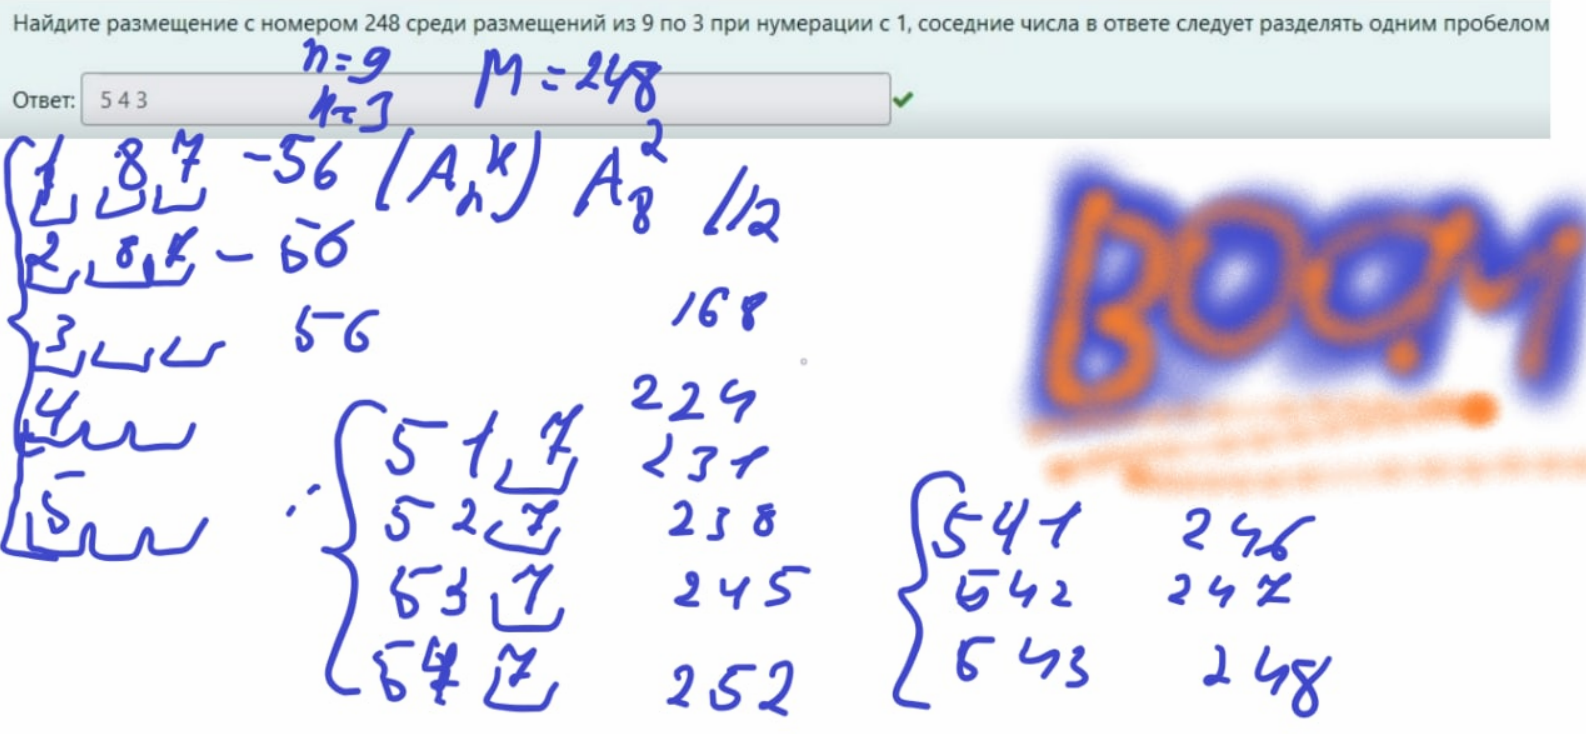 Найдите размещение с номером 248 среди размещений из 9 по 3 при нумерации с 1, соседние числа в ответе следует разделять одним пробелом
n=9 M=248
Ответ: 5 4 3
k=3
1 8 7 -56 (Aₙᵏ) A₈² 112
2 8 7 - 56
3 56 168
4 224
5
5 1 7 231
5 2 7 238
5 3 7 245
5 4 7 252
541 246
542 247
543 248
BOOM